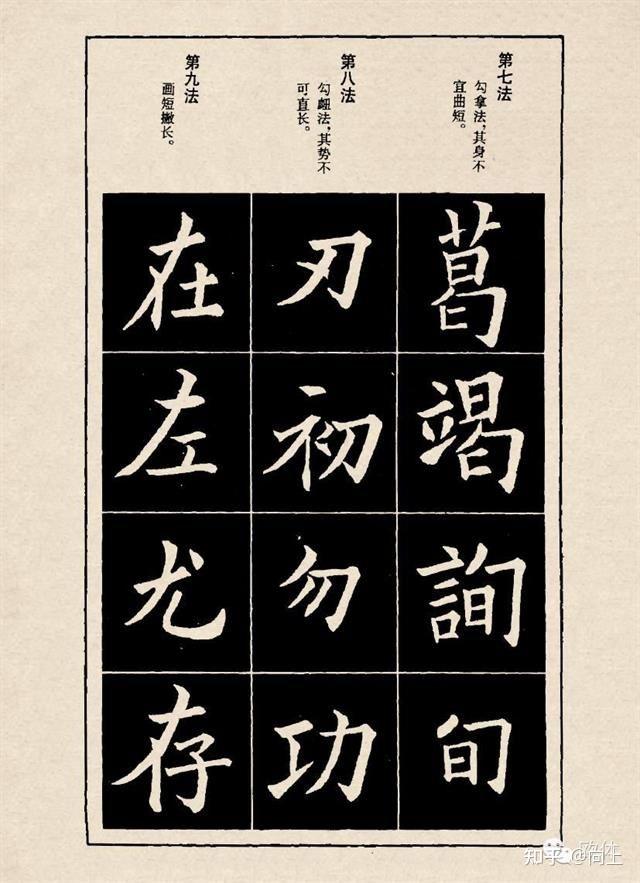 第七法
勾拿法，其身不
宜曲短。
葛
竭
詢
旬
第八法
勾衄法，其势不
可直长。
刃
初
勿
功
第九法
画短撇长。
在
左
尤
存
知乎